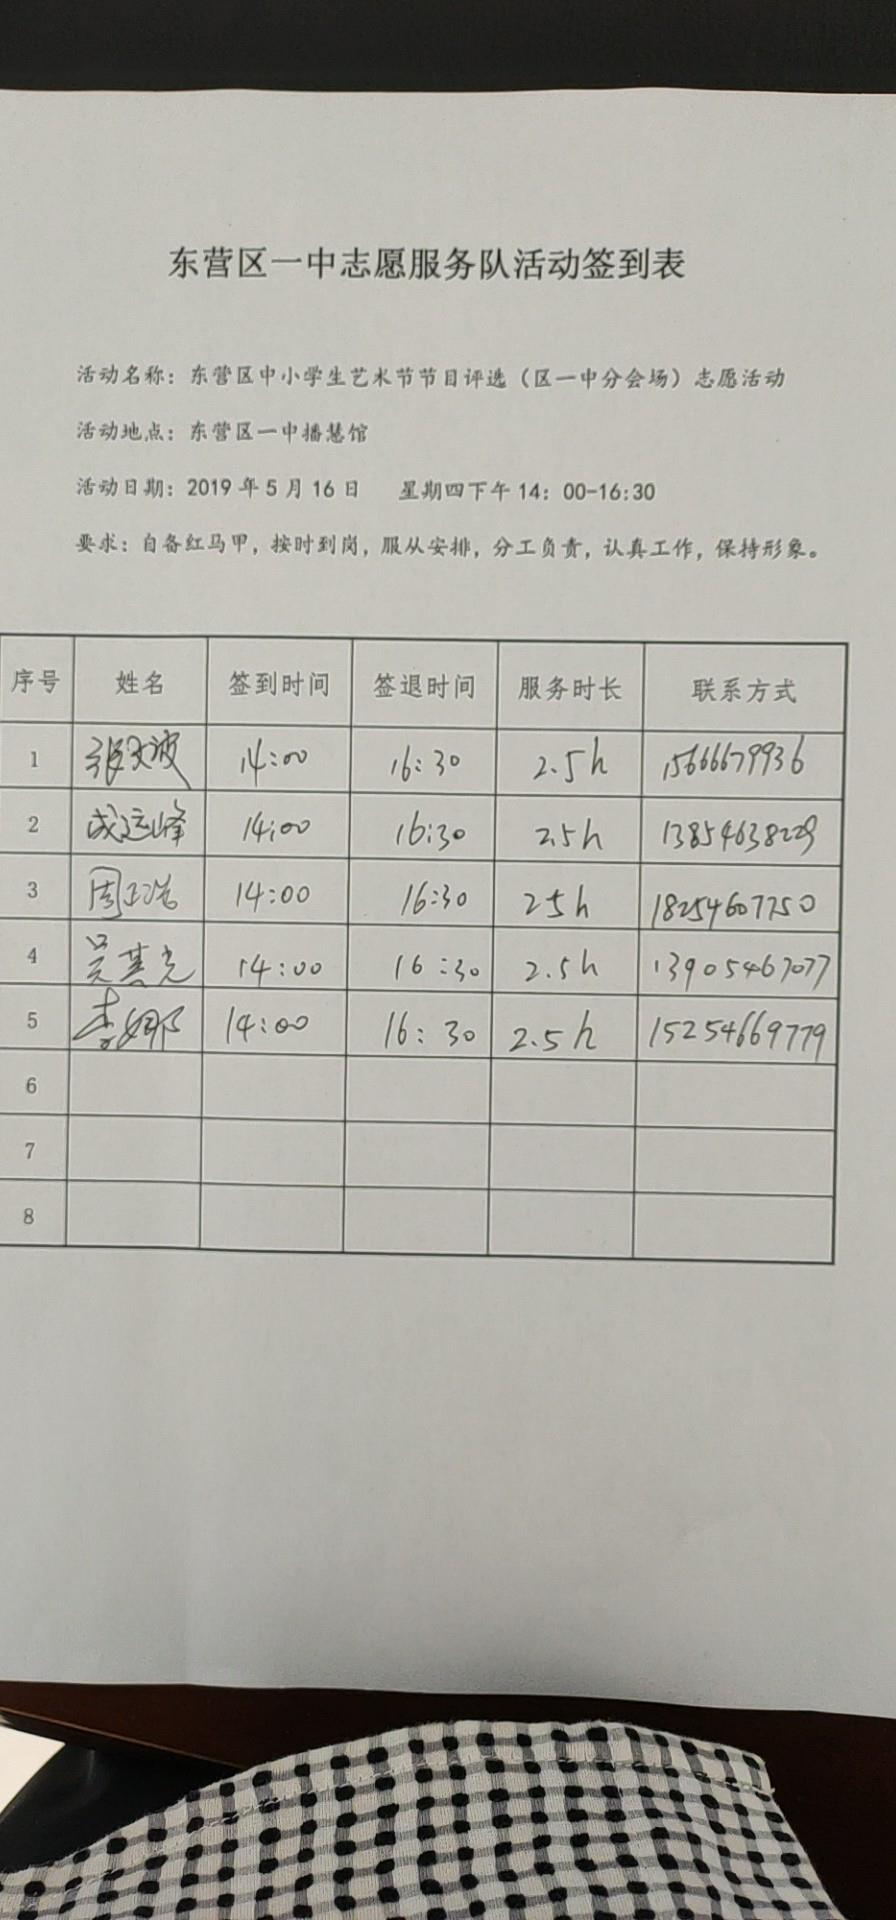 东营区一中志愿服务队活动签到表
活动名称：东营区中小学生艺术节节目评选（区一中分会场）志愿活动
活动地点：东营区一中播慧馆
活动日期：2019年5月16日 星期四下午14：00-16:30
要求：自备红马甲，按时到岗，服从安排，分工负责，认真工作，保持形象。
序号 姓名 签到时间 签退时间 服务时长 联系方式
1 14:00 16:30 2.5h 15666679936
2 成运峰 14:00 16:30 2.5h 13854638229
3 14:00 16:30 25h 18254607750
4 14:00 16:30 2.5h 13905467077
5 李娜 14:00 16:30 2.5h 15254669779
6
7
8